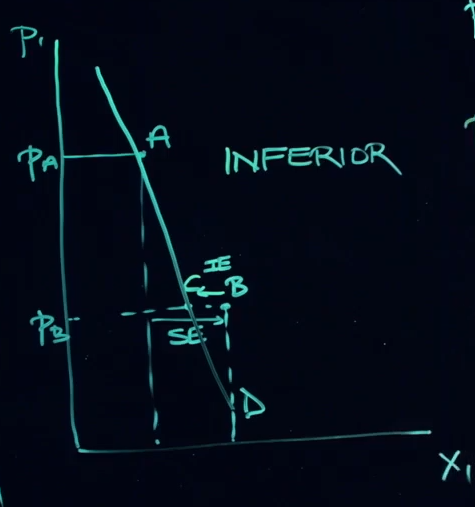 P₁
A
PA
INFERIOR
IE
C B
PB
SE
D
X₁